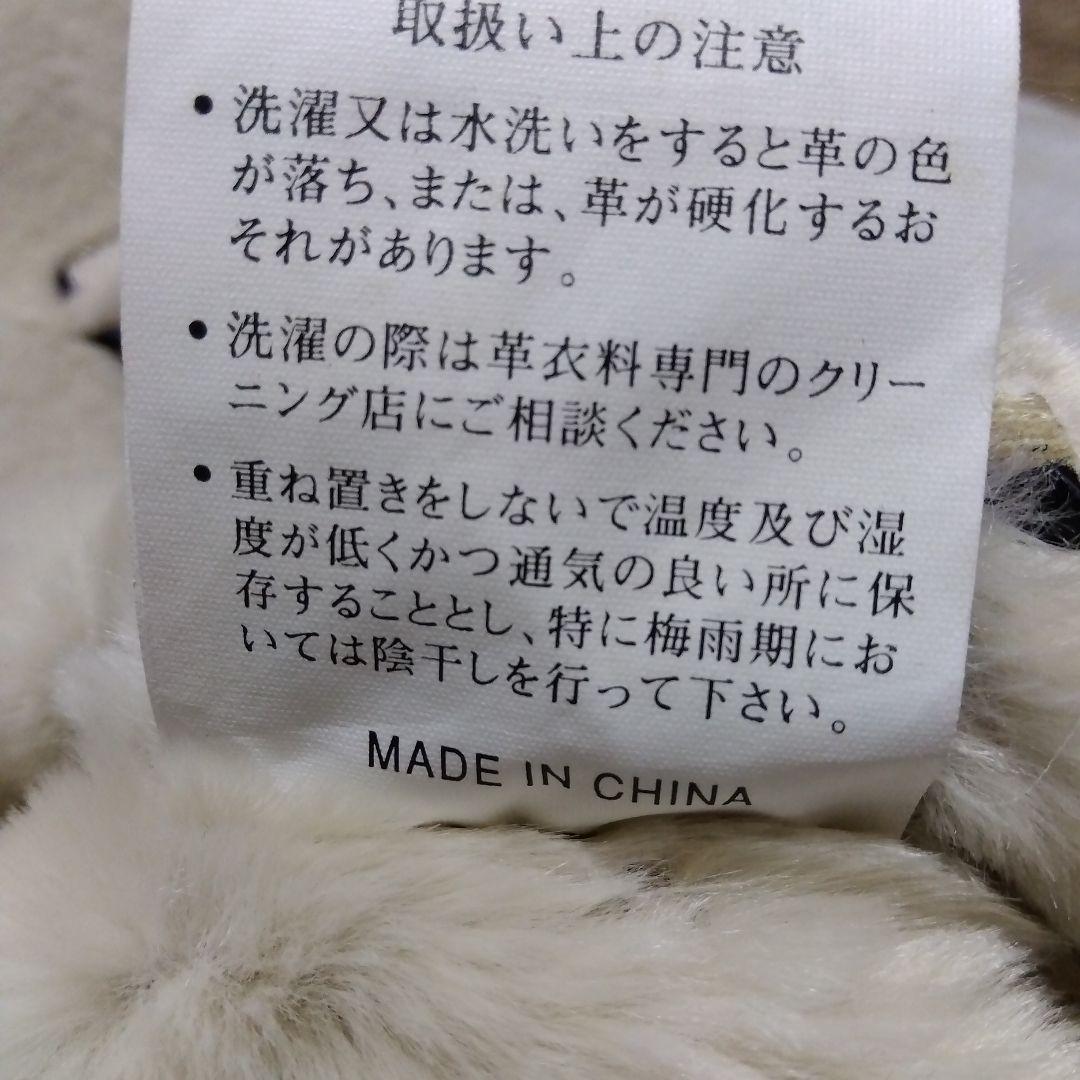 取扱い上の注意
• 洗濯又は水洗いをすると革の色
が落ち、または、革が硬化するお
それがあります。
• 洗濯の際は革衣料専門のクリー
ニング店にご相談ください。
• 重ね置きをしないで温度及び湿
度が低くかつ通気の良い所に保
存することとし、特に梅雨期にお
いては陰干しを行って下さい。
MADE IN CHINA